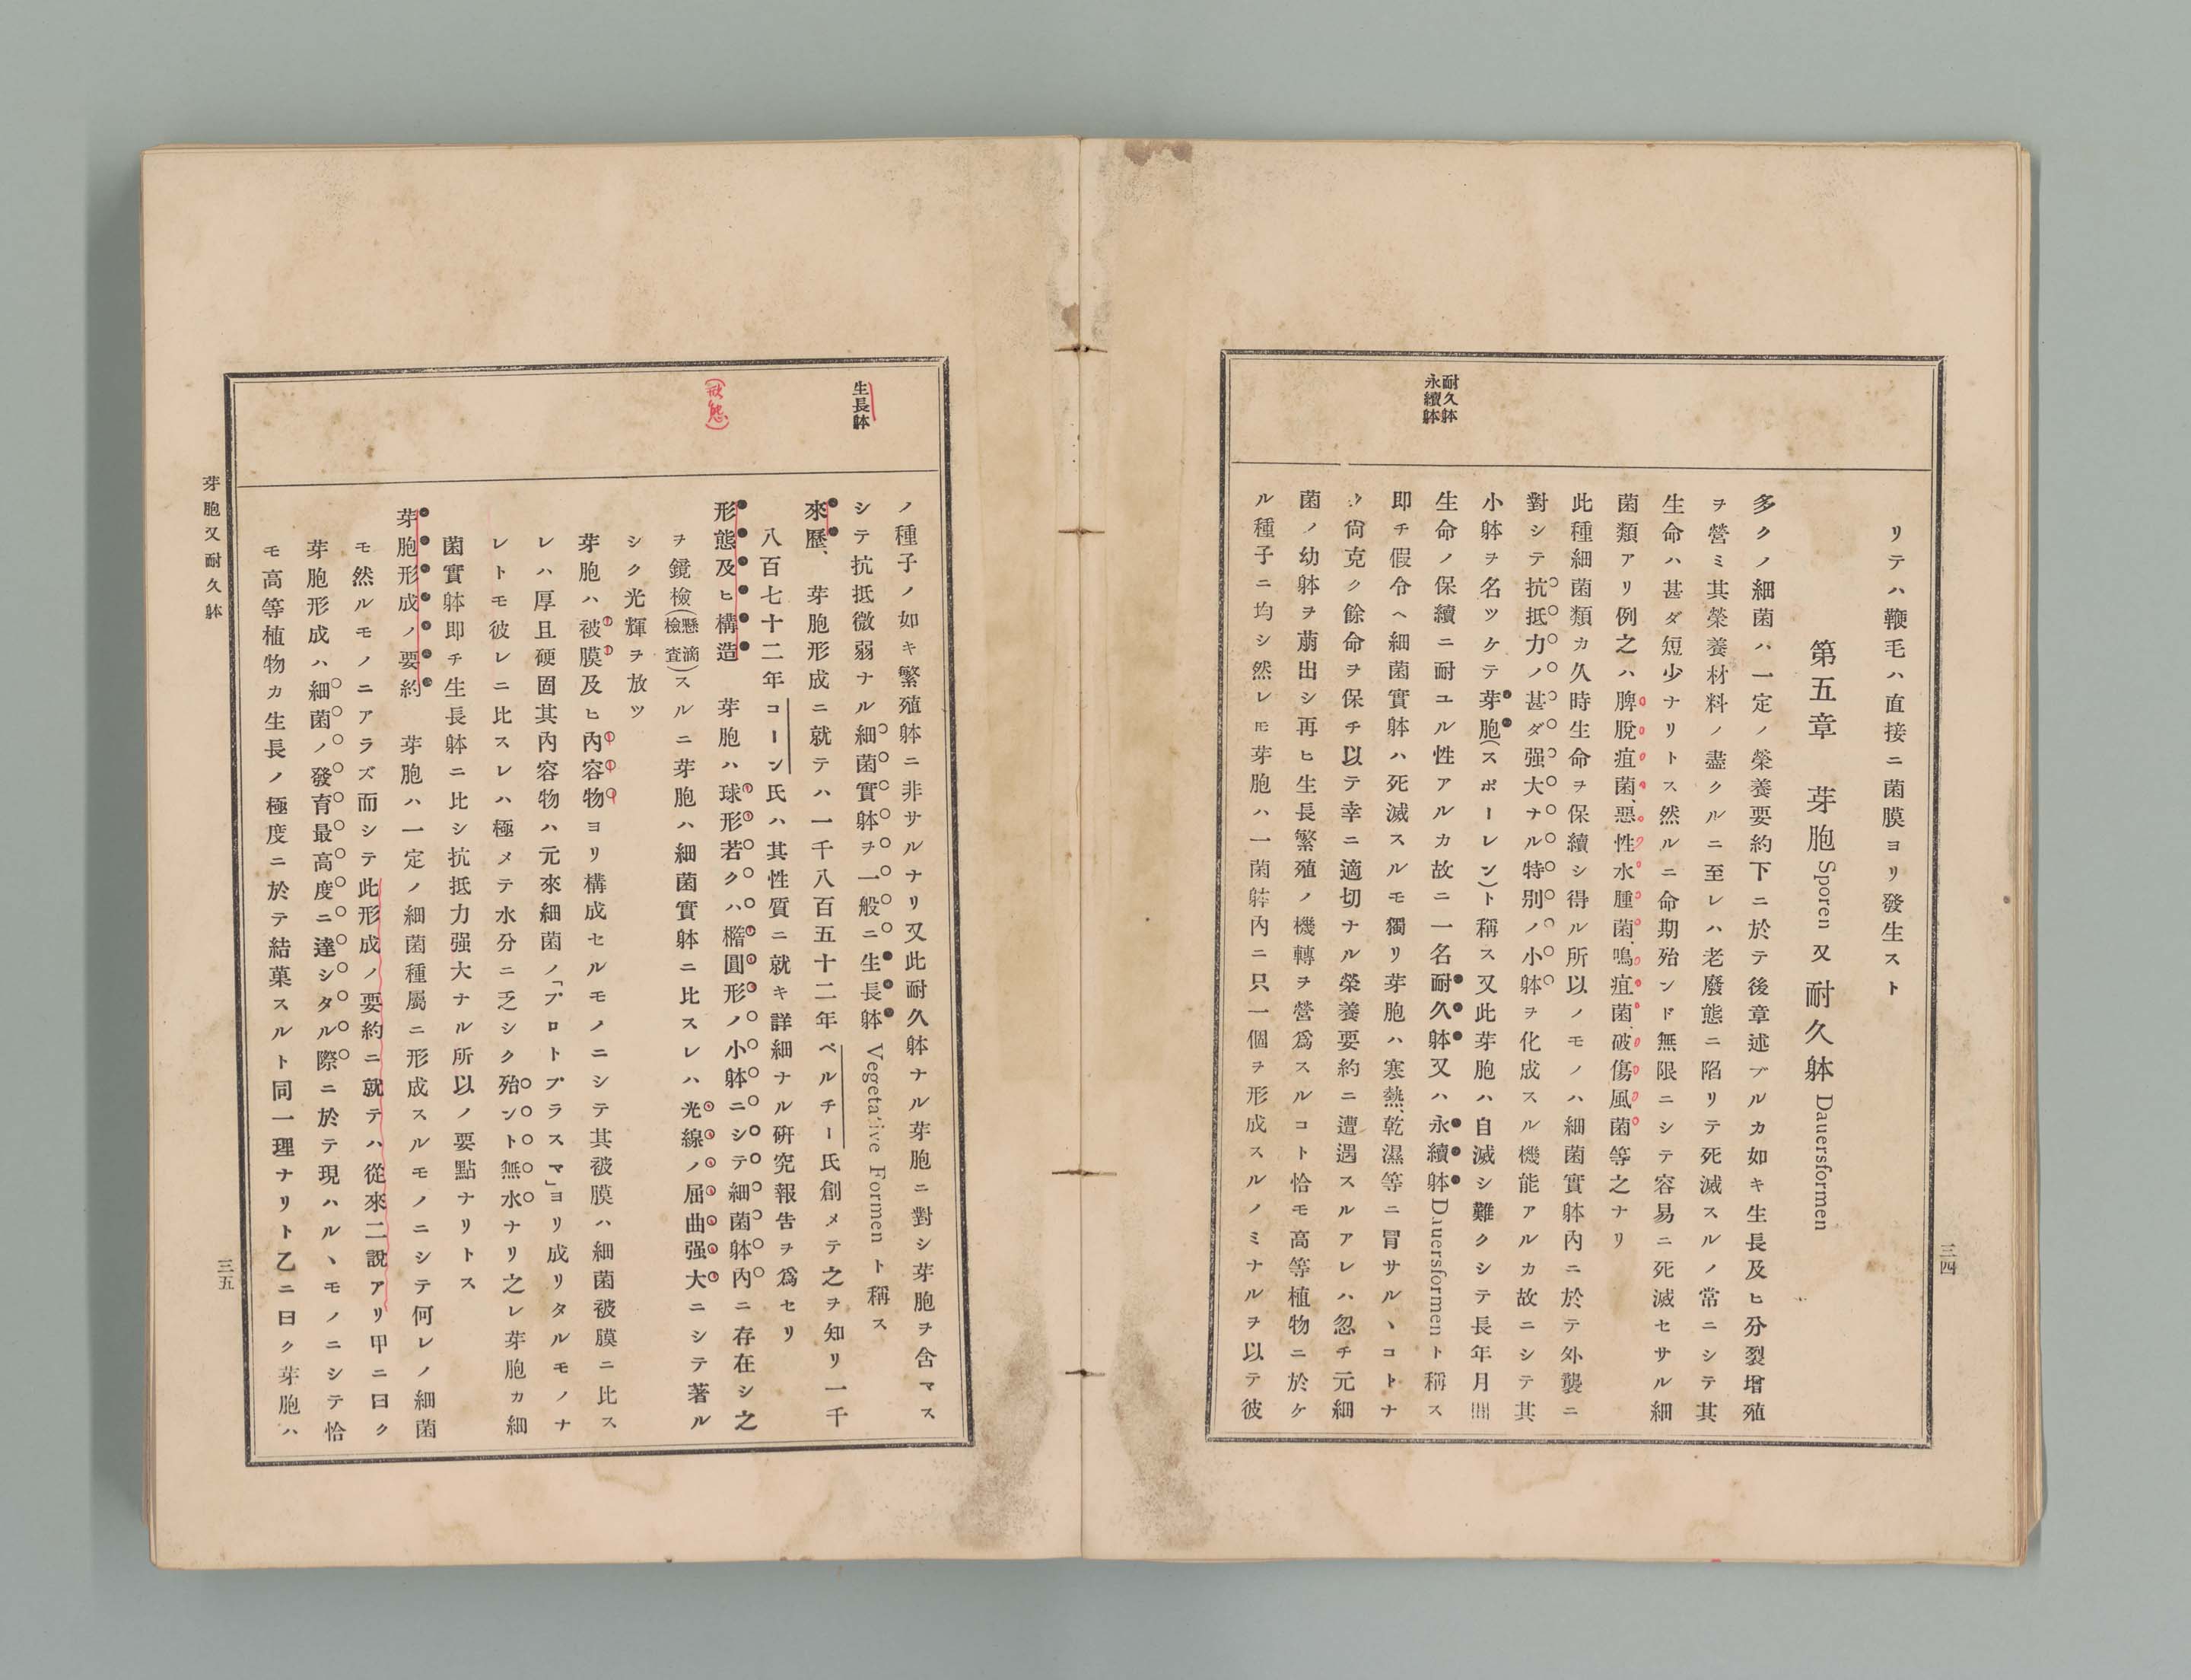 三四
耐久躰
永續躰
リテハ鞭毛ハ直接ニ菌膜ヨリ發生スト
第五章　芽胞 Sporen 又耐久躰 Dauersformen
多クノ細菌ハ一定ノ榮養要約下ニ於テ後章述ブルカ如キ生長及ヒ分裂增殖
ヲ營ミ其榮養材料ノ盡クルニ至レハ老廢態ニ陷リテ死滅スルノ常ニシテ其
生命ハ甚ダ短少ナリトス然ルニ命期殆ンド無限ニシテ容易ニ死滅セサル細
菌類アリ例之ハ脾脫疽菌、惡性水腫菌、鳴疽菌、破傷風菌等之ナリ
此種細菌類カ久時生命ヲ保續シ得ル所以ノモノハ細菌實躰內ニ於テ外襲ニ
對シテ抗抵力ノ甚ダ强大ナル特別ノ小躰ヲ化成スル機能アルカ故ニシテ其
小躰ヲ名ツケテ芽胞(スポーレン)ト稱ス又此芽胞ハ自滅シ難クシテ長年月間
生命ノ保續ニ耐ユル性アルカ故ニ一名耐久躰又ハ永續躰 Dauersformen ト稱ス
即チ假令ヘ細菌實躰ハ死滅スルモ獨リ芽胞ハ寒熱、乾濕等ニ冐サルヽコトナ
ク尙克ク餘命ヲ保チ以テ幸ニ適切ナル榮養要約ニ遭遇スルアレハ忽チ元細
菌ノ幼躰ヲ萠出シ再ヒ生長繁殖ノ機轉ヲ營爲スルコト恰モ高等植物ニ於ケ
ル種子ニ均シ然レ𪜈芽胞ハ一菌躰內ニ只一個ヲ形成スルノミナルヲ以テ彼
生長躰
(狀態)
ノ種子ノ如キ繁殖躰ニ非サルナリ又此耐久躰ナル芽胞ニ對シ芽胞ヲ含マス
シテ抗抵微弱ナル細菌實躰ヲ一般ニ生長躰 Vegetative Formen ト稱ス
來歷、　芽胞形成ニ就テハ一千八百五十二年ペルチー氏創メテ之ヲ知リ一千
八百七十二年コーン氏ハ其性質ニ就キ詳細ナル硏究報告ヲ爲セリ
形態及ヒ構造　芽胞ハ球形若クハ橢圓形ノ小躰ニシテ細菌躰內ニ存在シ之
ヲ鏡檢(懸滴檢査)スルニ芽胞ハ細菌實躰ニ比スレハ光線ノ屈曲强大ニシテ著ル
シク光輝ヲ放ツ
芽胞ハ被膜及ヒ內容物ヨリ構成セルモノニシテ其被膜ハ細菌被膜ニ比ス
レハ厚且硬固其內容物ハ元來細菌ノ「プロトプラスマ」ヨリ成リタルモノナ
レトモ彼レニ比スレハ極メテ水分ニ乏シク殆ント無水ナリ之レ芽胞カ細
菌實躰即チ生長躰ニ比シ抗抵力强大ナル所以ノ要點ナリトス
芽胞形成ノ要約　芽胞ハ一定ノ細菌種屬ニ形成スルモノニシテ何レノ細菌
モ然ルモノニアラズ而シテ此形成ノ要約ニ就テハ從來二說アリ甲ニ曰ク
芽胞形成ハ細菌ノ發育最高度ニ達シタル際ニ於テ現ハルヽモノニシテ恰
モ高等植物カ生長ノ極度ニ於テ結菓スルト同一理ナリト乙ニ曰ク芽胞ハ
芽胞又耐久躰
三五